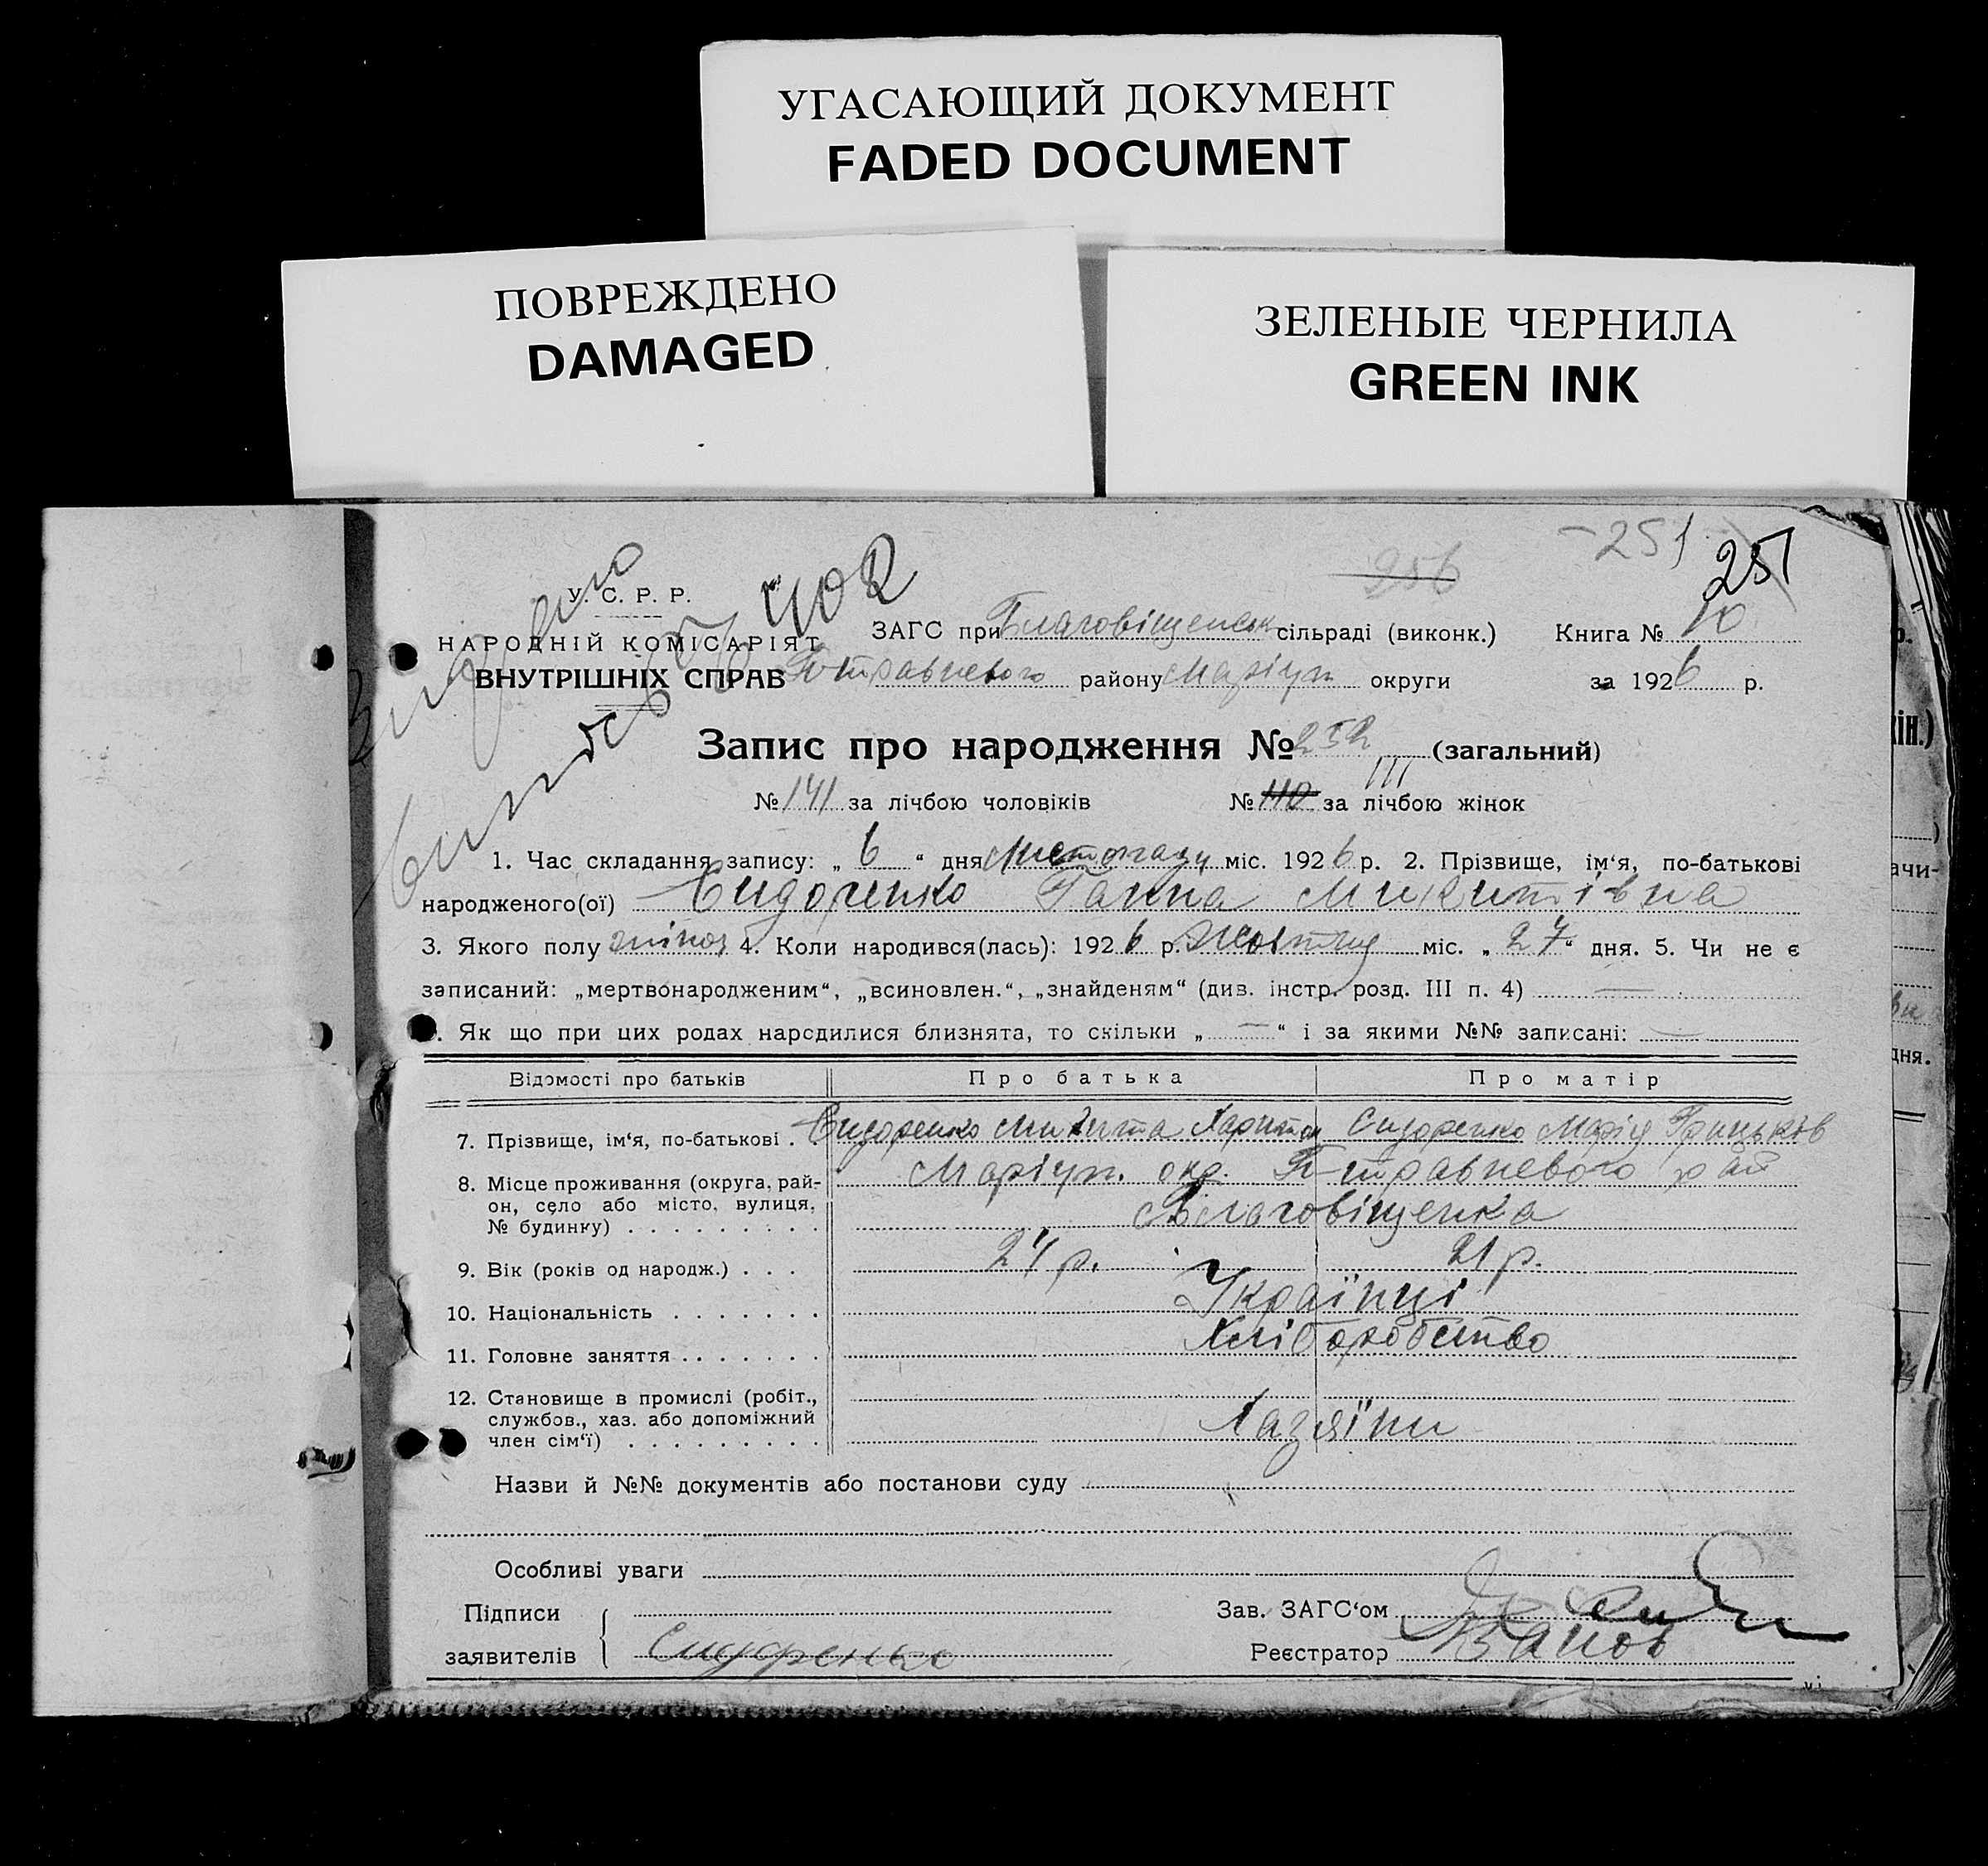 УГАСАЮЩИЙ ДОКУМЕНТ
FADED DOCUMENT
ПОВРЕЖДЕНО
DAMAGED
ЗЕЛЕНЫЕ ЧЕРНИЛА
GREEN INK
-251
256
251
402
У. С. Р. Р.
НАРОДНІЙ КОМІСАРІЯТ
ВНУТРІШНІХ СПРАВ
ЗАГС при Благовіщенськ сільраді (виконк.) Книга № 10
травневого району Маріуп округи за 1926 р.
Запис про народження № 252 (загальний)
№ 141 за лічбою чоловіків № 110 111 за лічбою жінок
1. Час складання запису: „ 6 “ дня Листопаду міс. 1926 р. 2. Прізвище, ім‘я, по-батькові
народженого(ої) Сидоренко Ганна Микитівна
3. Якого полу жіноч 4. Коли народився(лась): 1926 р. Жовтня міс. „ 27 “ дня. 5. Чи не є
записаний: „мертвонародженим“, „всиновлен.“, „знайденям“ (див. інстр. розд. III п. 4) —
. Як що при цих родах народилися близнята, то скільки „ — “ і за якими №№ записані: —
Відомості про батьків Про батька Про матір
7. Прізвище, ім‘я, по-батькові . Сидоренко Микита Харитон Сидоренко Марія Грицьків
8. Місце проживання (округа, рай-
он, село або місто, вулиця,
№ будинку) . . . . . . . . .
Маріуп. окр. травневого рай
с Благовіщенка
9. Вік (років од народж.) . . . 24 р. 21 р.
10. Національність . . . . . . . Українці
11. Головне заняття . . . . . . . Хліборобство
12. Становище в промислі (робіт.,
службов., хаз. або допоміжний
член сім‘ї) . . . . . . . . .
Хазяїни
Назви й №№ документів або постанови суду
Особливі уваги
Підписи
заявителів
Сидоренко
Зав. ЗАГС‘ом
Реєстратор